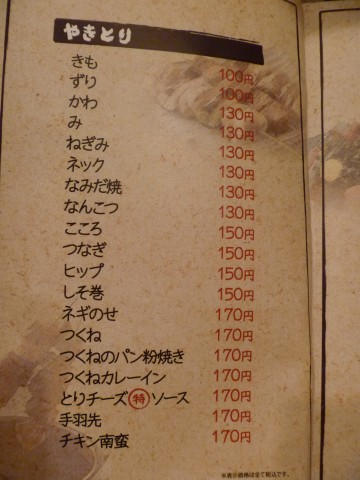 やきとり
きも 100円
ずり 100円
かわ 130円
み 130円
ねぎみ 130円
ネック 130円
なみだ焼 130円
なんこつ 130円
こころ 150円
つなぎ 150円
ヒップ 150円
しそ巻 150円
ネギのせ 170円
つくね 170円
つくねのパン粉焼き 170円
つくねカレーイン 170円
とりチーズ特ソース 170円
手羽先 170円
チキン南蛮 170円
※表示価格は全て税込です。